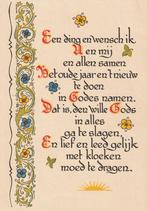 Een ding en wensch ik
U en mij
en allen samen
Het oude jaar en t nieuw
te doen
in Godes namen.
Dat is, den wille Gods
in alles
ga te slagen,
En lief en leed gelijk
met kloeken
moed te dragen.